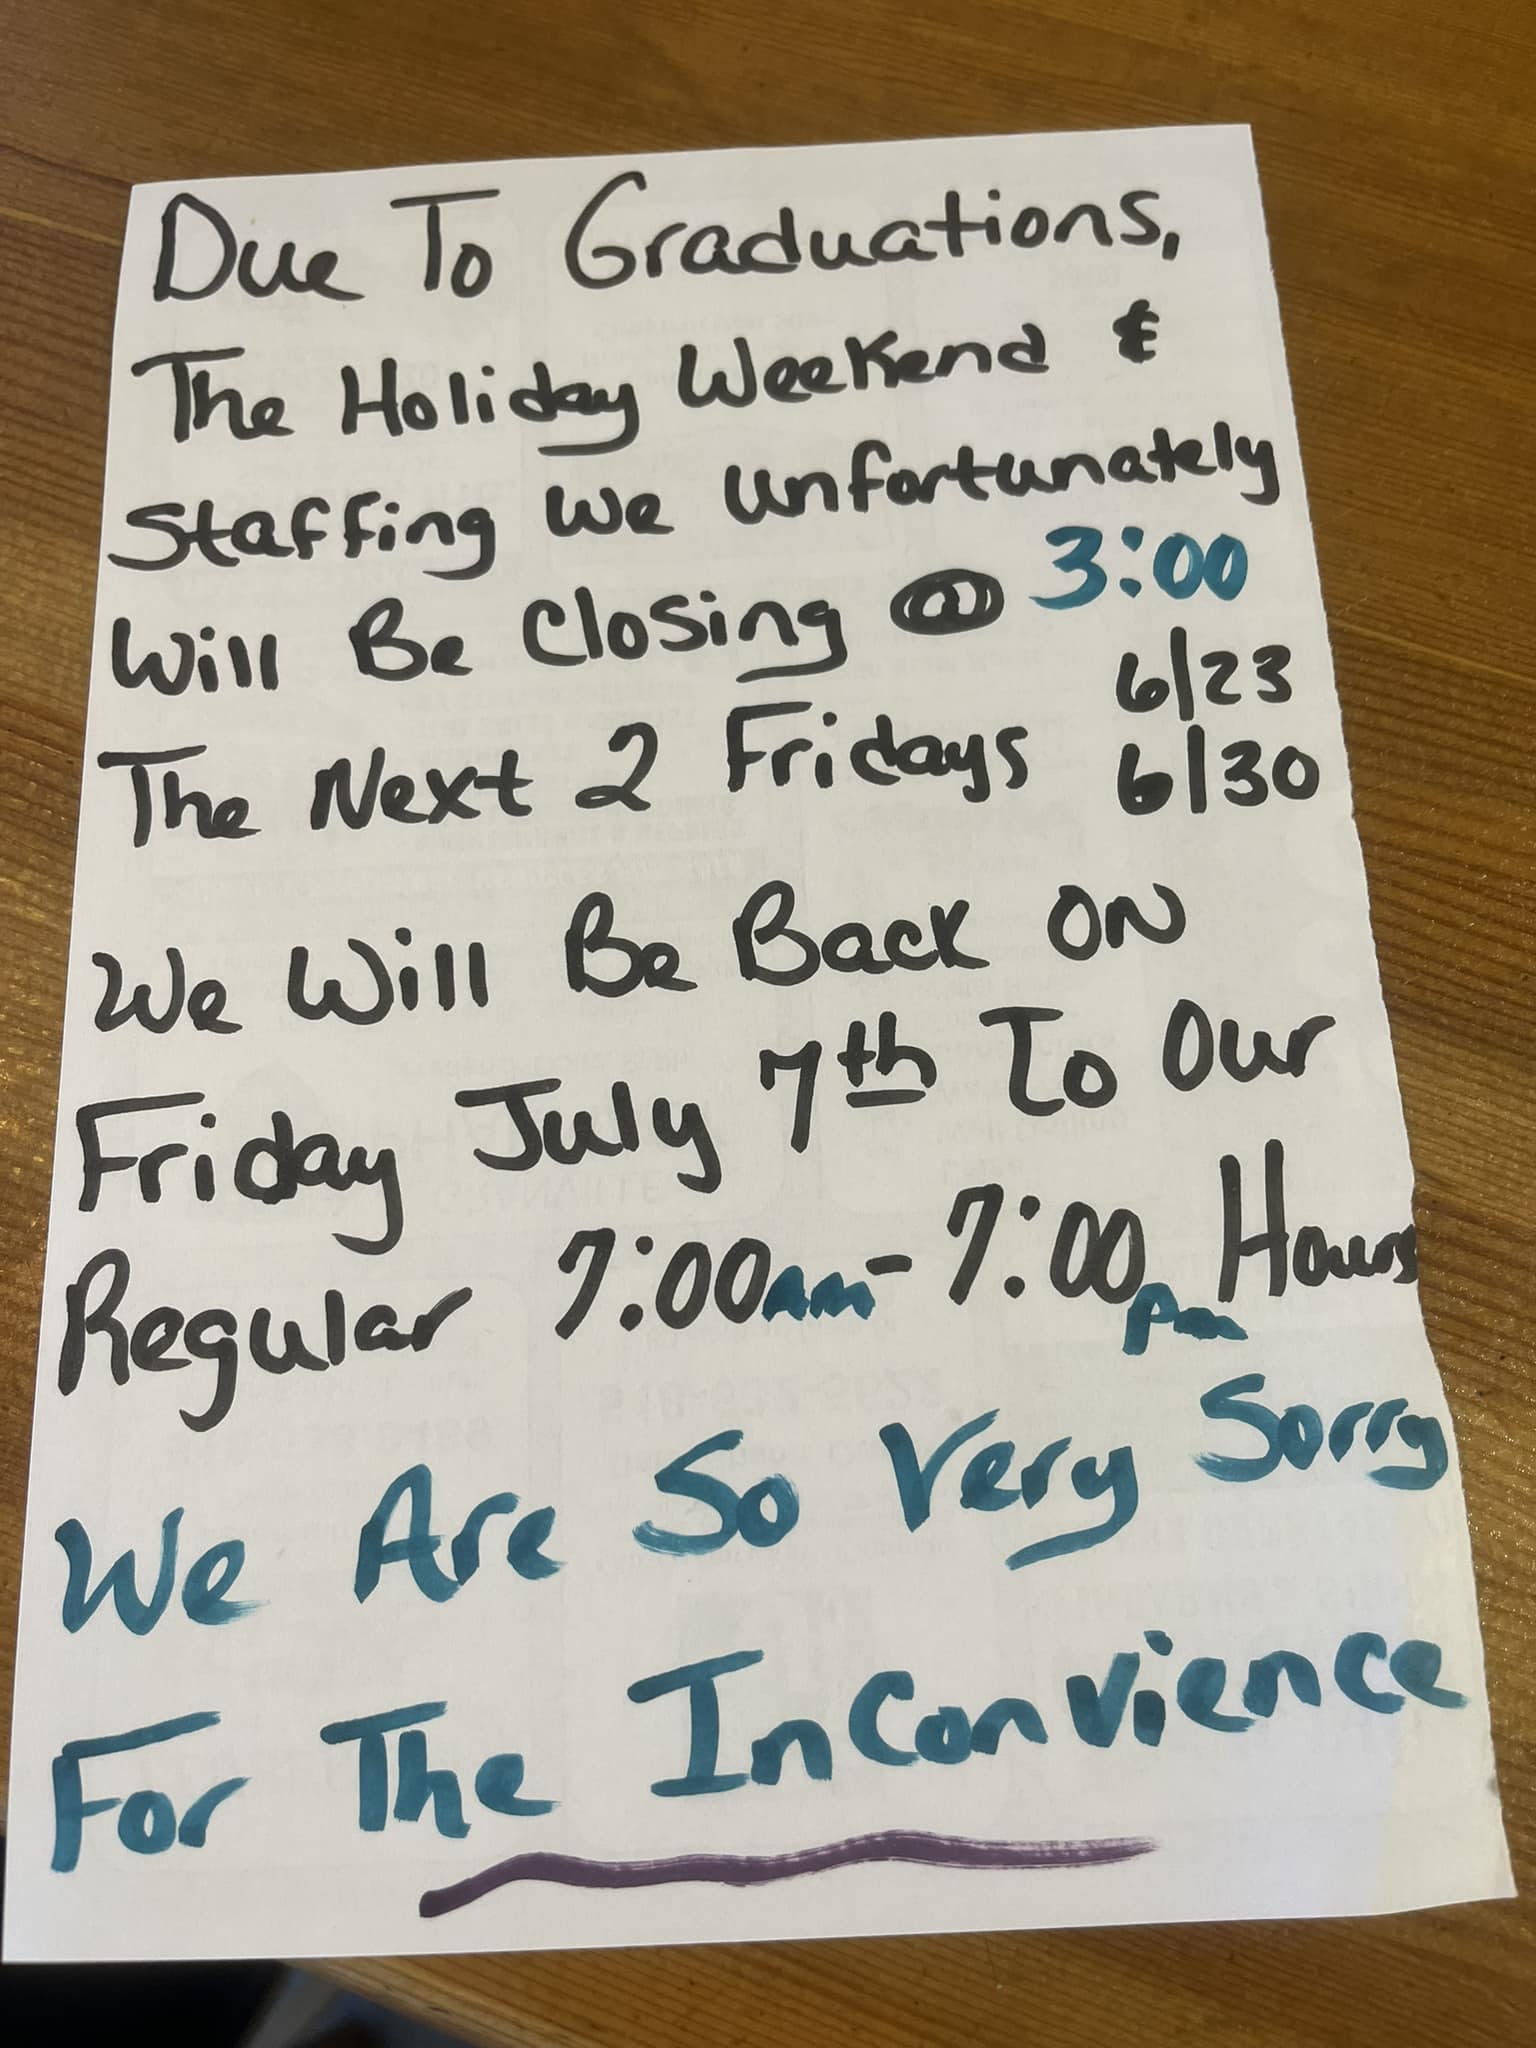 Due To Graduations,
The Holiday Weekend &
Staffing We Unfortunately
Will Be Closing @ 3:00
The Next 2 Fridays 6/23
6/30
We Will Be Back ON
Friday July 7th To Our
Regular 7:00AM - 7:00pm Hours
We Are So Very Sorry
For The Inconvience